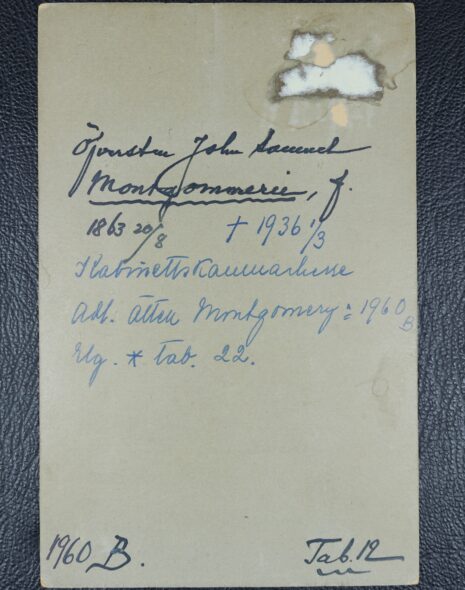 Öfversten John Samuel
Montgommerie, f.
1863 20/8 † 1936 1/3
Kabinettskammarherre
Adl. ätten Montgomery: 1960
B
Elg. * Tab. 22.
1960 B. Tab. 12